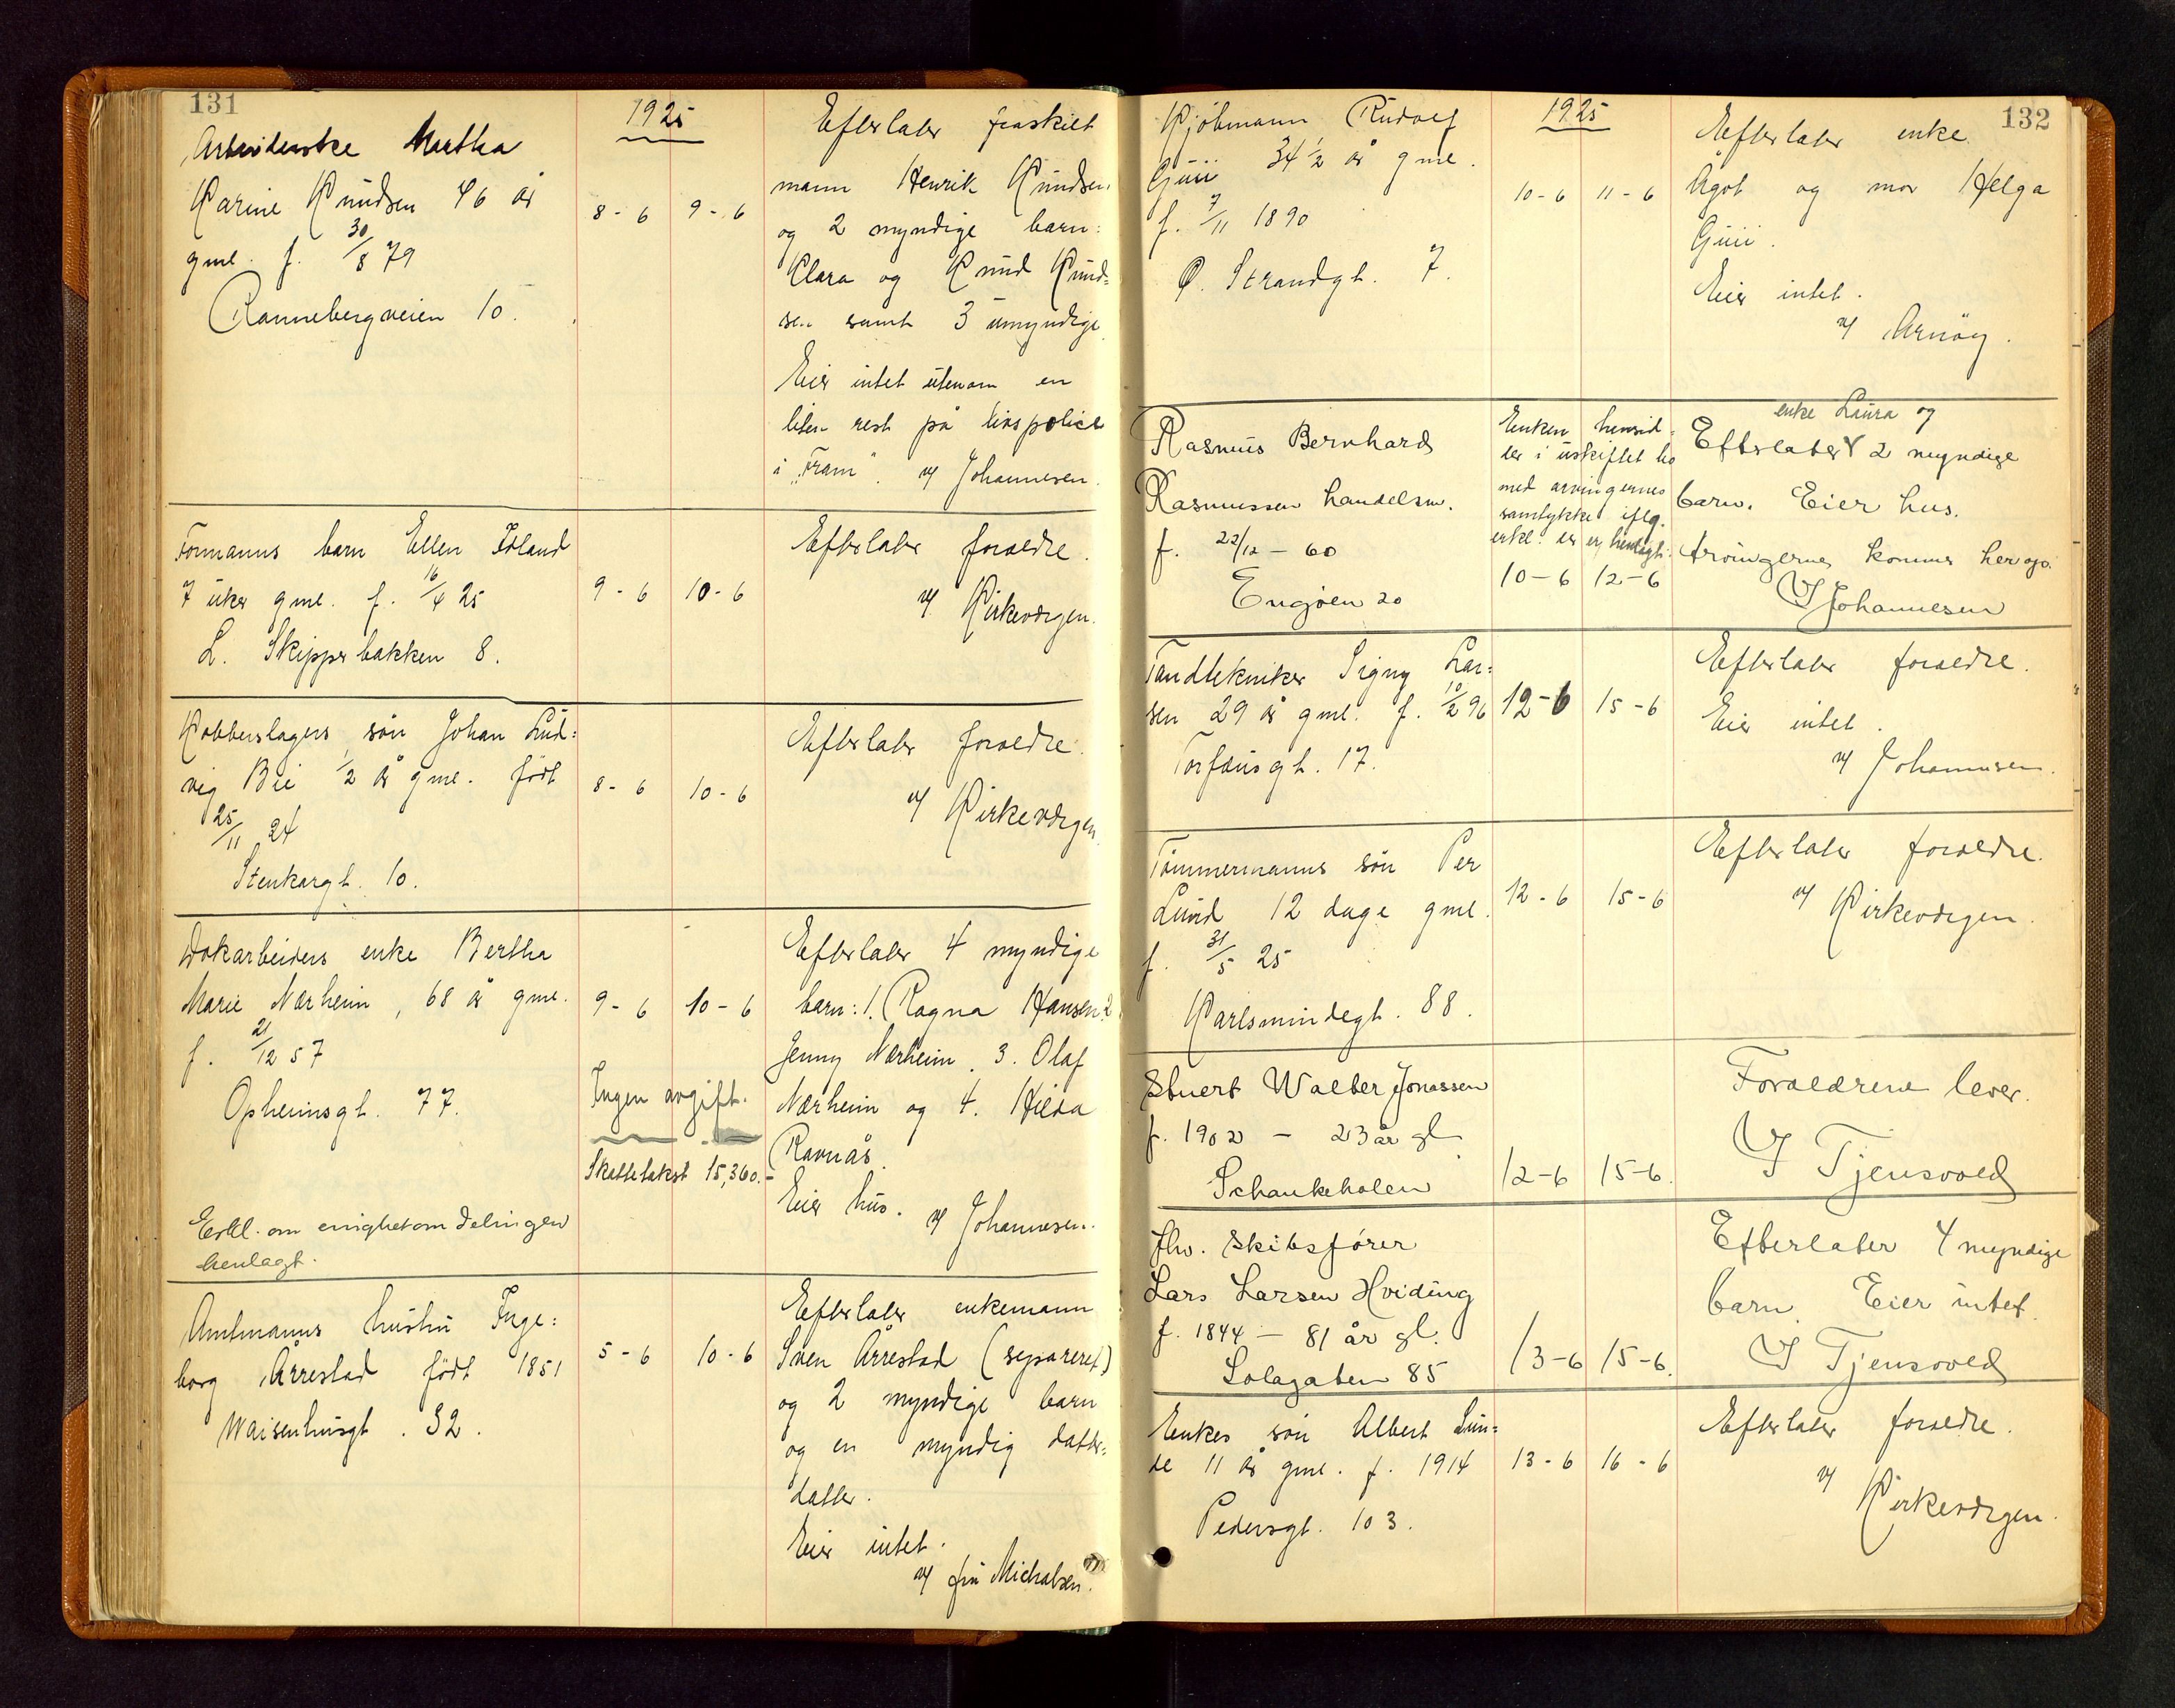 131
1925
Arbeiderske Martha
Karine Knudsen 46 år
gml. f. 30/8 79
Rannebergveien 10.
8 - 6
9 - 6
Efterlater fraskilt
mann Henrik Knudsen
og 2 myndige barn:
Clara og Knud Knud=
sen samt 3 umyndige
Eier intet utenom en
liten rest på livspolice
i "Fram". v/ Johannesen.
Formanns barn Ellen Îdland
7 uker gml. f. 16/4 25
L. Skipperbakken 8.
9 - 6
10 - 6
Efterlater foreldre.
v/ Kirkevergen.
Kobberslagers sön Johan Lud=
vig Bei 1/2 år gml. född
25/11 24
Stenkargt. 10.
8 - 6
10 - 6
Efterlater foreldre.
v/ Kirkevergen.
Dokarbeiders enke Bertha
Marie Nærheim, 68 år gml.
f. 21/12 57
Opheimsgt. 77.
Erkl. om enighet om delingen
henlagt.
9 - 6
10 - 6
Ingen avgift.
Skattetakst 15,360.-
Efterlater 4 myndige
barn: 1. Ragna Hansen 2
Jenny Nærheim. 3. Olaf
Nærheim og 4. Hilda
Ravnås.
Eier hus. v/ Johannesen.
Amtmanns hustru Inge=
borg Årrestad født 1851
Waisenhusgt. 32.
5 - 6
10 - 6
Efterlater enkemann
Sven Årrestad (separeret)
og 2 myndige barn
og en myndig datter=
datter.
Eier intet.
v/ fru Michalsen.
132
1925
Kjöbmann Rudolf
34 1/2 år gml.
f. 7/11 1890
Ø. Strandgt. 7.
10 - 6
11 - 6
Efterlater enke
Ågot og mor Helga
Eier intet.
v/ Arnöy.
Rasmus Bernhard
Rasmussen handelsm.
f. 22/12 - 60
Engöen 20
Enken hensid=
der i uskiftet bo
med arvingernes
samtykke iflg.
erkl. er henlagt.
10 - 6
12 - 6
enke Laura og
Efterlater 2 myndige
barn. Eier hus.
Arvingerne kommer herop.
V Johannesen
Tandtekniker Signy Lar=
sen 29 år gml. f. 10/2 96
Torfæusgt. 17.
12 - 6
15 - 6
Efterlater foreldre.
Eier intet.
v/ Johannesen.
Tömmermanns sön Per
Lund 12 dage gml.
f. 31/5 25
Karlsmindegt. 88.
12 - 6
15 - 6
Efterlater foreldre.
v/ Kirkevergen.
Stuert Walter Jonassen
f. 1902 - 23 år gl.
Schankeholen
12 - 6
15 - 6.
Forældrene lever.
V Tjensvold
fhv. Skibsfører
Lars Larsen Hviding
f. 1844 - 81 år gl.
Solagaten 85
13 - 6
15 - 6.
Efterlater 4 myndige
barn. Eier intet.
V Tjensvold
Enkes sön Albert Lun=
de 11 år gml. f. 1914
Pedersgt. 103.
13 - 6
16 - 6
Efterlater foreldre.
v/ Kirkevergen.